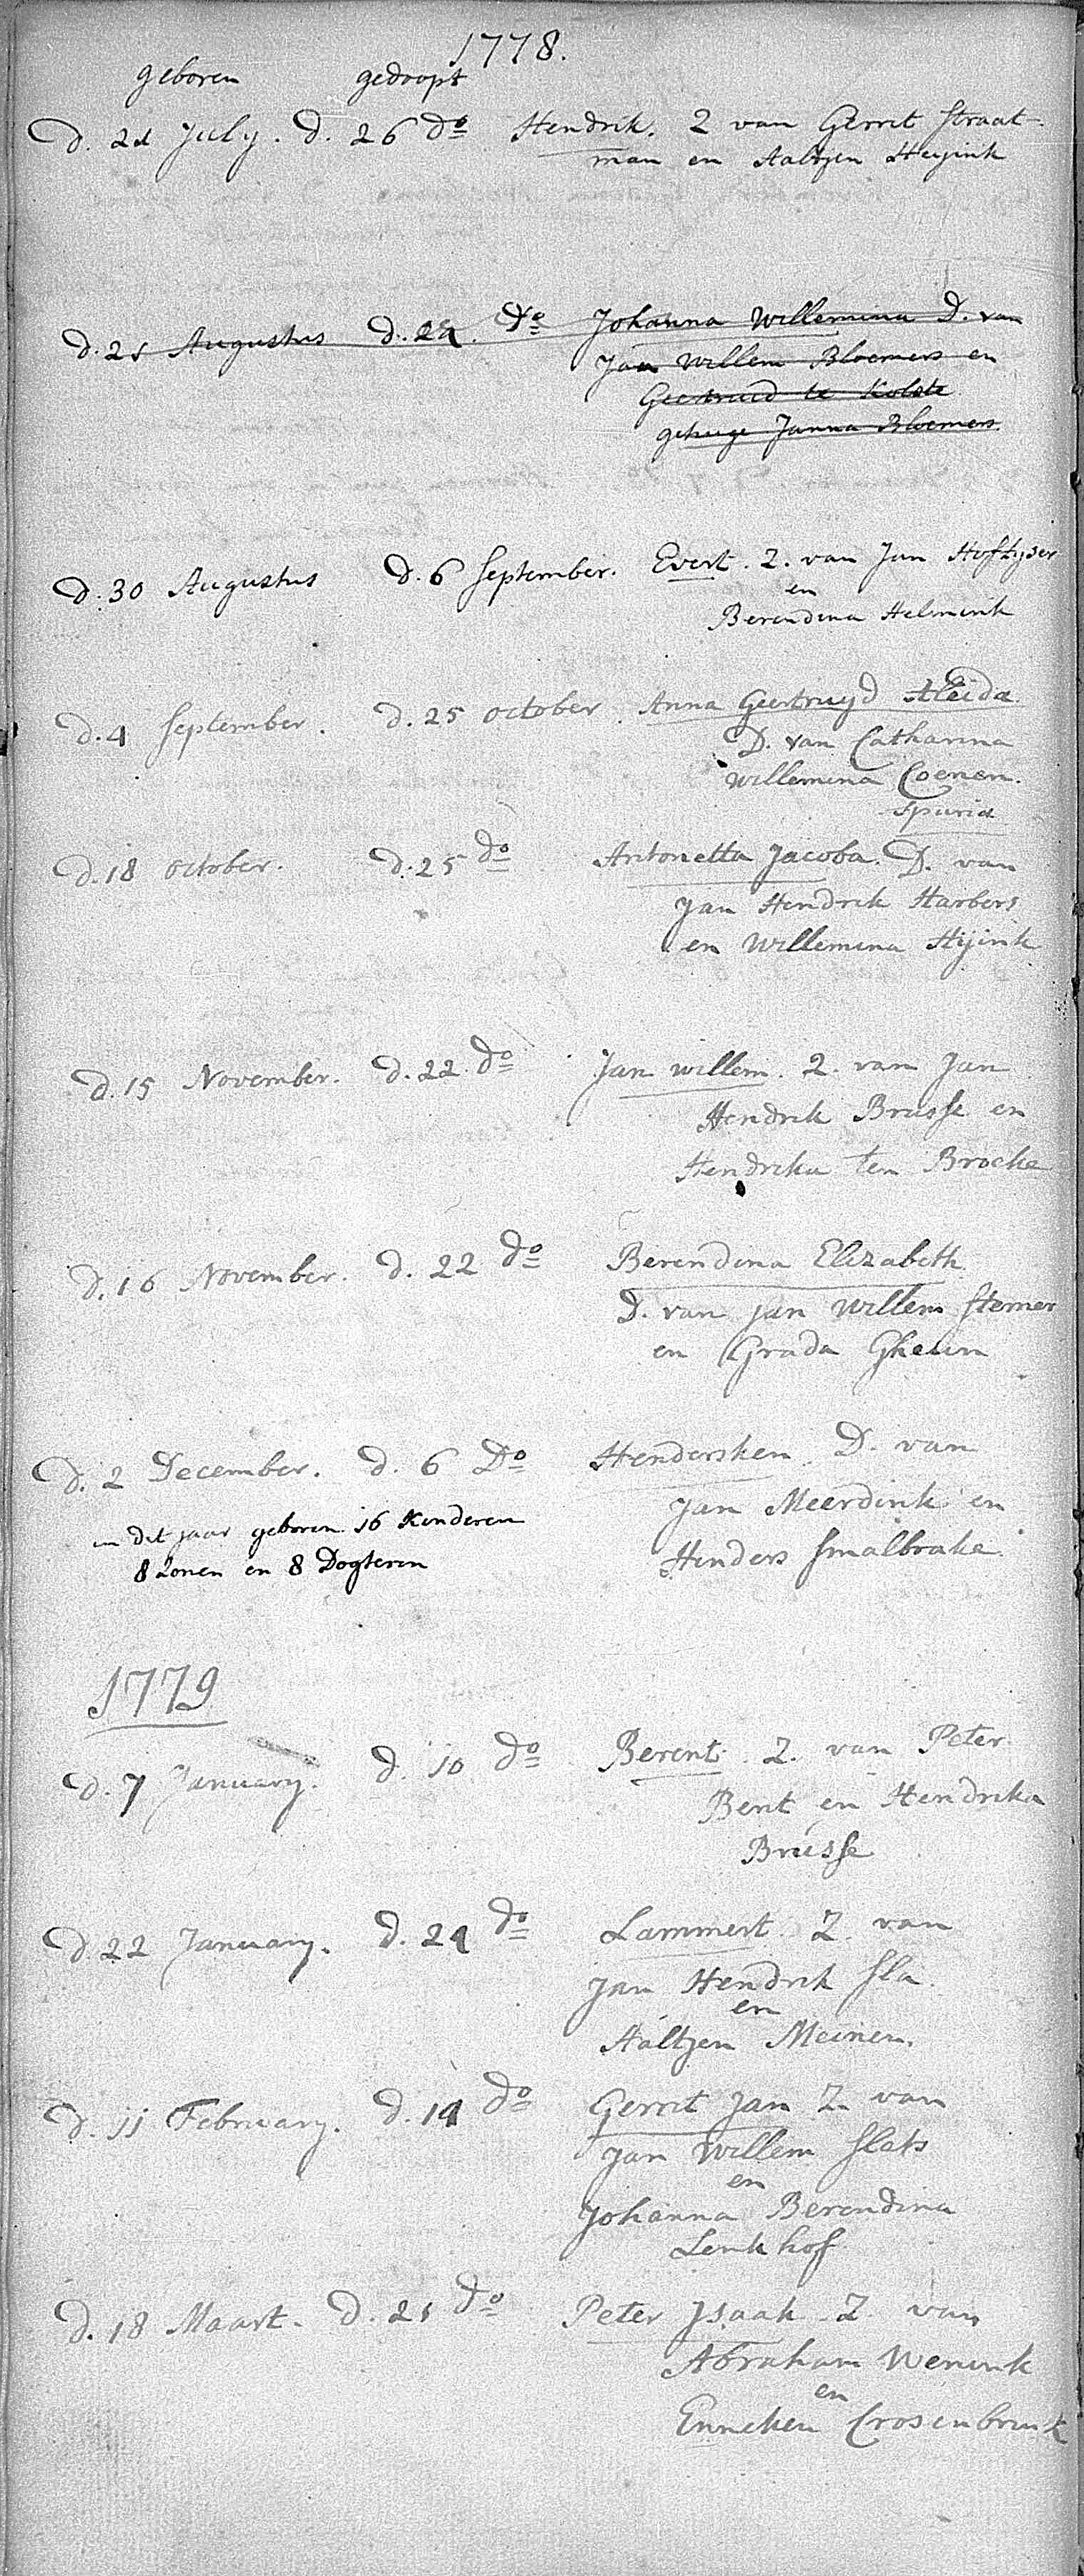 1778.
geboren gedoopt
D. 21 July. D. 26 do Hendrik. Z van Gerrit Straat-
man en Aaltjen Heijink
D. 21 Augustus D. 24. Do Johanna Willemina D. van
Jan Willem Bloemers en
Geertruid te Kolste
getuige Janna Bloemers.
D. 30 Augustus D. 6 September. Evert. Z. van Jan Hoftyser
en
Berendina Helmink
D. 4 September. D. 25 october. Anna Geertruyd Aleida
D. van Catharina
Willemina Coenen.
spuria
D. 18 october. D. 25 do Antonetta Jacoba. D. van
Jan Hendrik Harbers
en Willemina Hijink
D. 15 November. D. 22. do Jan willem. Z. van Jan
Hendrik Brusse en
Hendrika ten Brocke
D. 16 November. D. 22 do Berendina Elizabeth
D. van Jan Willem Stemer
en Grada
D. 2 December. D. 6 Do Hendersken D. van
Jan Meerdink en
Henders Smalbrake
in dit jaar geboren 16 Kinderen
8 Zonen en 8 Dogteren
1779
D. 7 January. D. 10 do Berent. Z. van Peter
Bent en Hendrika
Brusse
D. 22 January. D. 24 do Lammert. Z. van
Jan Hendrik Sla
en
Aaltjen Meinen.
D. 11 February. D. 14 do Gerrit Jan Z. van
Jan Willem Slats
en
Johanna Berendina
Lenkhof
D. 18 Maart. D. 21 do Peter Jsaak Z. van
Abraham Wenink
en
Enneken Crosenbrink